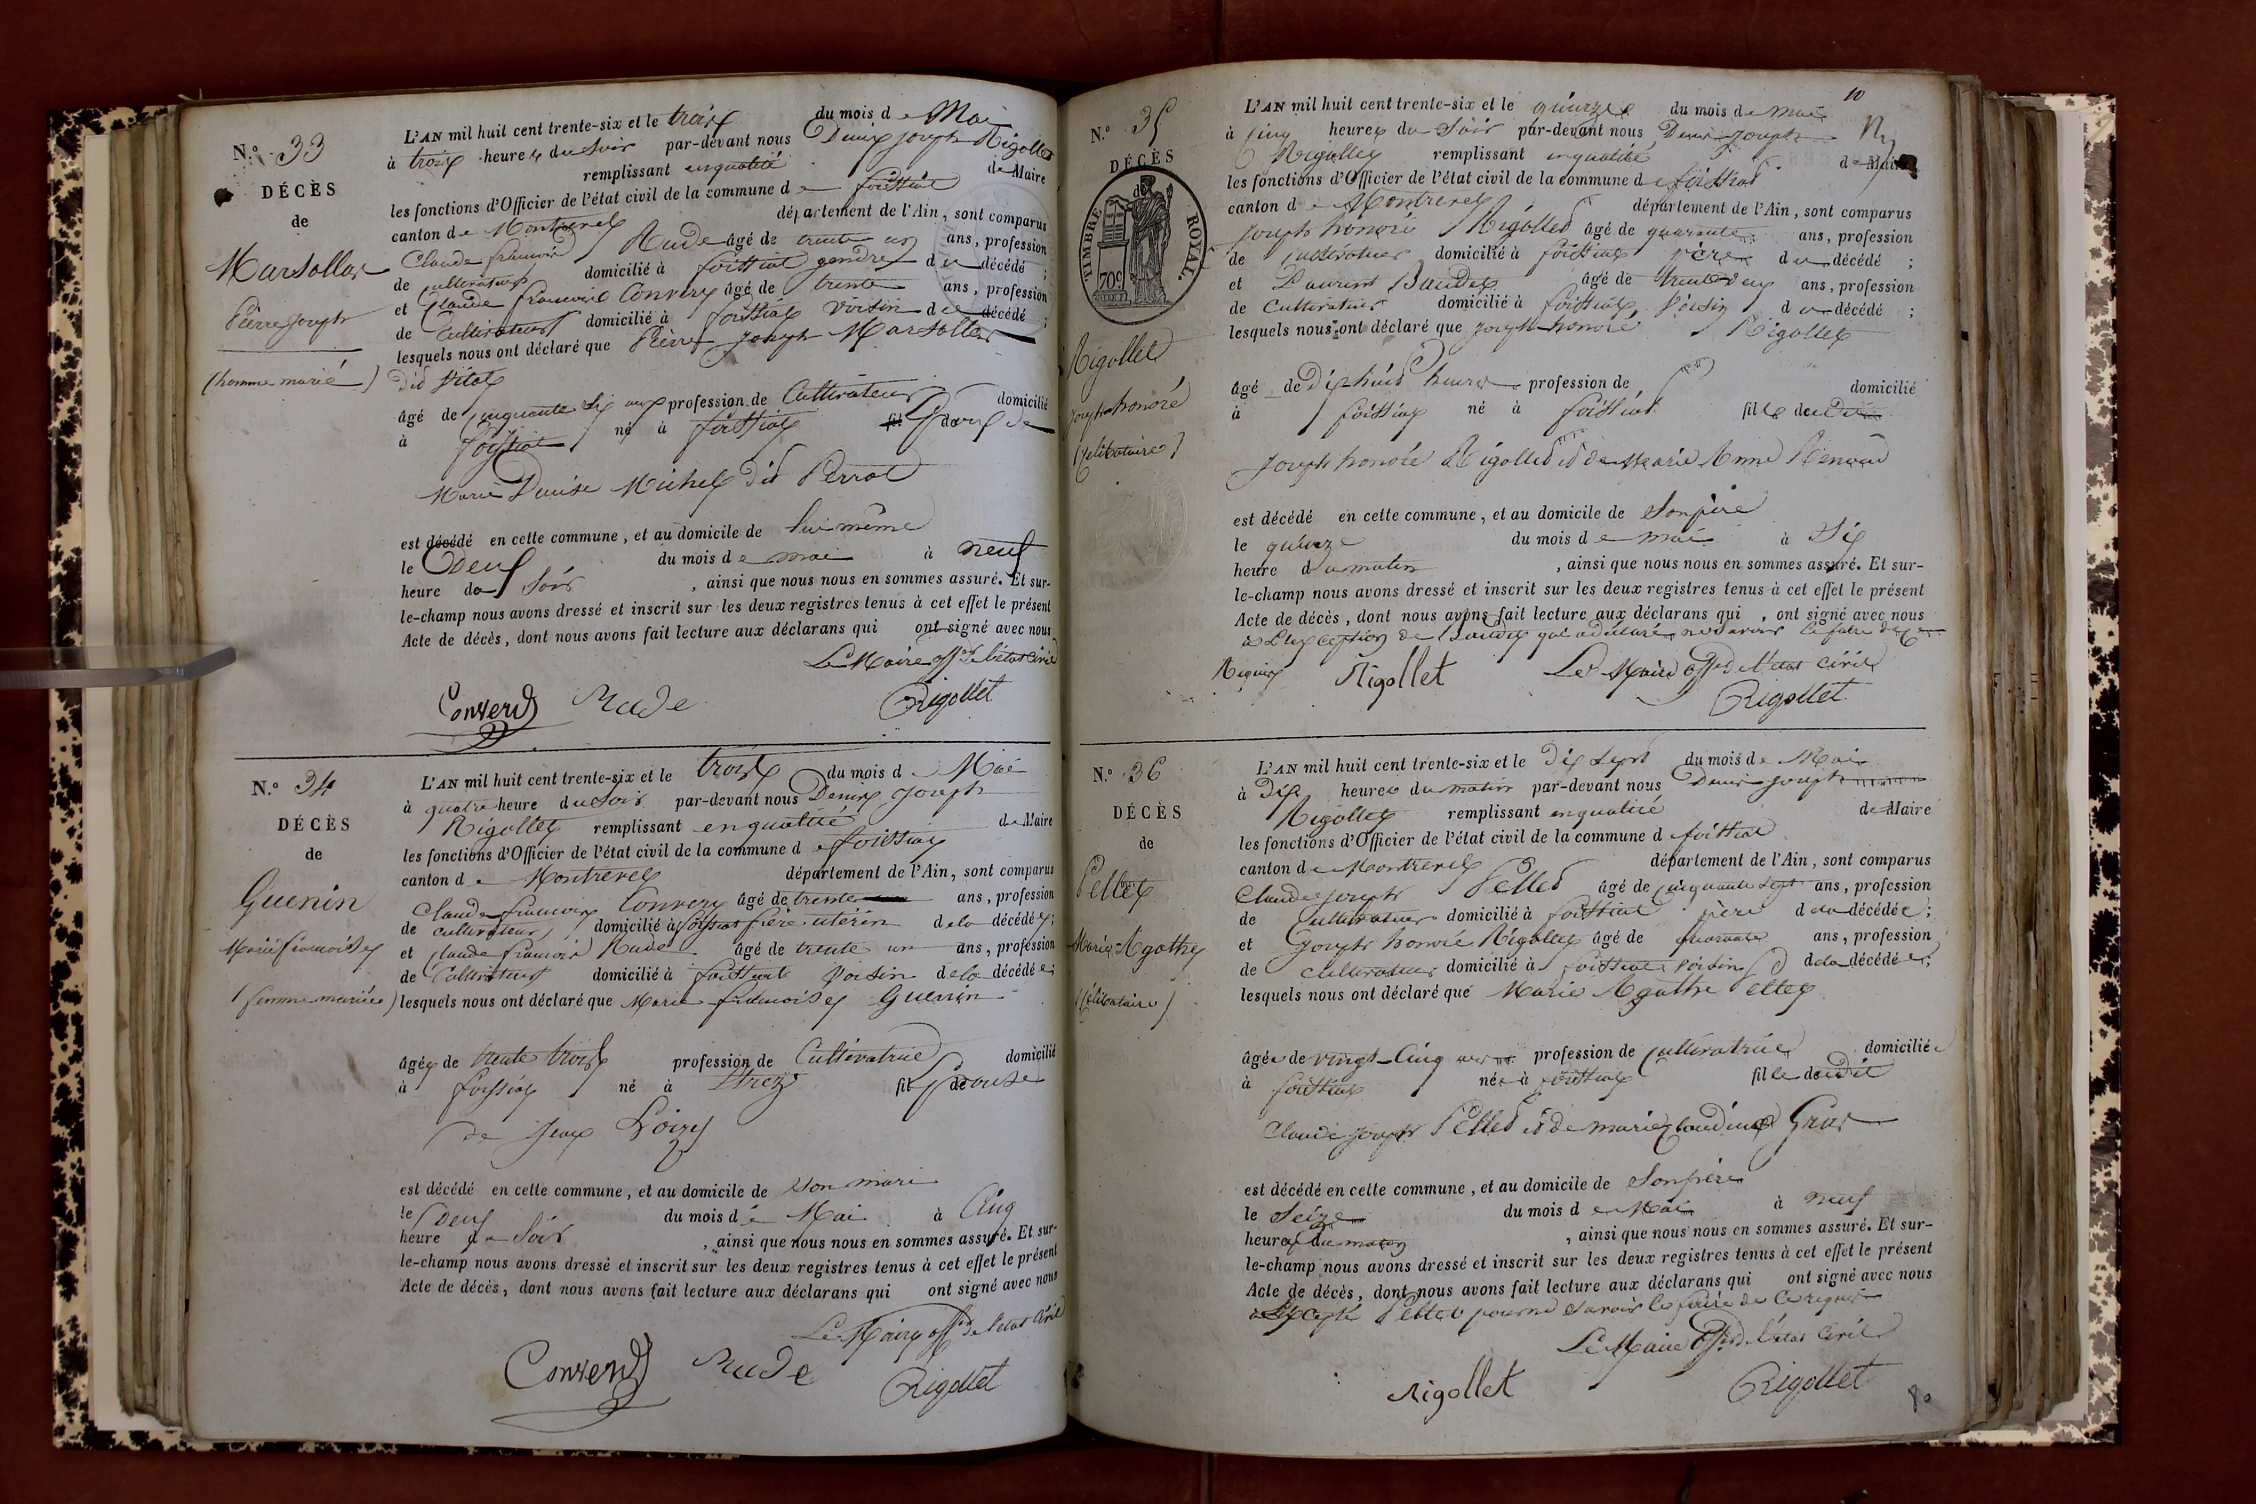 N.º 33
DÉCÈS
de
Marsollas
Pierre Joseph
(homme marié)
L'AN mil huit cent trente-six et le trois du mois de Mai
à trois heures du soir par-devant nous Denis Joseph Rigollet
remplissant en qualité de Maire
les fonctions d'Officier de l'état civil de la commune de foissiat
canton de Montrevel département de l'Ain, sont comparus
Claude françois Rude âgé de trente un ans, profession
de cultivateur domicilié à foissiat gendre du décédé ;
et Claude françois Convert âgé de trente ans, profession
de Cultivateur domicilié à foissiat voisin du décédé ;
lesquels nous ont déclaré que Pierre Joseph Marsollas
dit Vital
âgé de cinquante six ans profession de Cultivateur domicilié
à foissiat né à foissiat fil Epoux de
Marie Denise Michel dit Perrat
est décédé en cette commune, et au domicile de lui même
le Deux du mois de mai à neuf
heure du Soir , ainsi que nous nous en sommes assuré. Et sur-
le-champ nous avons dressé et inscrit sur les deux registres tenus à cet effet le présent
Acte de décès, dont nous avons fait lecture aux déclarans qui ont signé avec nous
Le Maire off. de l'état civil
Convert Rude Rigollet
N.º 34
DÉCÈS
de
Guenin
Marie françoise
(femme mariée)
L'AN mil huit cent trente-six et le trois du mois de Mai
à quatre heure du Soir par-devant nous Denis Joseph
Rigollet remplissant en qualité de Maire
les fonctions d'Officier de l'état civil de la commune de foissiat
canton de Montrevel département de l'Ain, sont comparus
Claude françois Convert âgé de trente ans, profession
de cultivateur domicilié à foissiat frère utérin de la décédée ;
et Claude françois Rude âgé de trente un ans, profession
de Cultivateur domicilié à foissiat voisin de la décédée ;
lesquels nous ont déclaré que Marie françoise Guenin
âgée de trente trois profession de Cultivatrice domicilié
à foissiat né à fil Epouse
de Jean Loizy
est décédé en cette commune, et au domicile de son mari
le Deux du mois de Mai à Cinq
heure de Soir , ainsi que nous nous en sommes assuré. Et sur-
le-champ nous avons dressé et inscrit sur les deux registres tenus à cet effet le présent
Acte de décès, dont nous avons fait lecture aux déclarans qui ont signé avec nous
Le Maire off. de l'état Civil
Convert Rude Rigollet
10
N.º 35
DÉCÈS
de
TIMBRE ROYAL
70c
Rigollet
Joseph honoré
(célibataire)
L'AN mil huit cent trente-six et le quinze du mois de mai
à cinq heures du Soir par-devant nous Denis Joseph
Rigollet remplissant en qualité de Maire
les fonctions d'Officier de l'état civil de la commune de foissiat
canton de Montrevel département de l'Ain, sont comparus
Joseph honoré Rigollet âgé de quarante ans, profession
de cultivateur domicilié à foissiat père du décédé ;
et Laurent Baudet âgé de trente deux ans, profession
de Cultivateur domicilié à foissiat Voisin du décédé ;
lesquels nous ont déclaré que Joseph honoré Rigollet
âgé de Dix huit heures profession de domicilié
à foissiat né à foissiat fils dudit
Joseph honoré Rigollet et de Marie Anne Renoud
est décédé en cette commune, et au domicile de Son père
le quinze du mois de mai à Six
heure du matin , ainsi que nous nous en sommes assuré. Et sur-
le-champ nous avons dressé et inscrit sur les deux registres tenus à cet effet le présent
Acte de décès, dont nous avons fait lecture aux déclarans qui , ont signé avec nous
à l'exception de Baudet qui a déclaré ne savoir le faire de ce
Requis Rigollet Le Maire off. de l'état Civil
Rigollet
N.º 36
DÉCÈS
de
Pellet
Marie Agathe
(Célibataire)
L'AN mil huit cent trente-six et le Dix Sept du mois de Mai
à Dix heures du matin par-devant nous Denis Joseph
Rigollet remplissant en qualité de Maire
les fonctions d'Officier de l'état civil de la commune d foissiat
canton de Montrevel département de l'Ain, sont comparus
Claude Joseph Pellet âgé de cinquante sept ans, profession
de Cultivateur domicilié à foissiat père de la décédée ;
et Joseph honoré Rigollet âgé de quarante ans, profession
de cultivateur domicilié à foissiat voisin de la décédée ;
lesquels nous ont déclaré que Marie Agathe Pellet
âgée de vingt-Cinq ans profession de Cultivatrice domiciliée
à foissiat née à foissiat fille dudit
Claude Joseph Pellet et de marie Claudine
est décédé en cette commune, et au domicile de Son père
le Seize du mois de Mai à neuf
heures du matin , ainsi que nous nous en sommes assuré. Et sur-
le-champ nous avons dressé et inscrit sur les deux registres tenus à cet effet le présent
Acte de décès, dont nous avons fait lecture aux déclarans qui ont signé avec nous
Excepté Pellet pour ne savoir le faire de ce requis
Le Maire off. de l'état Civil
Rigollet Rigollet